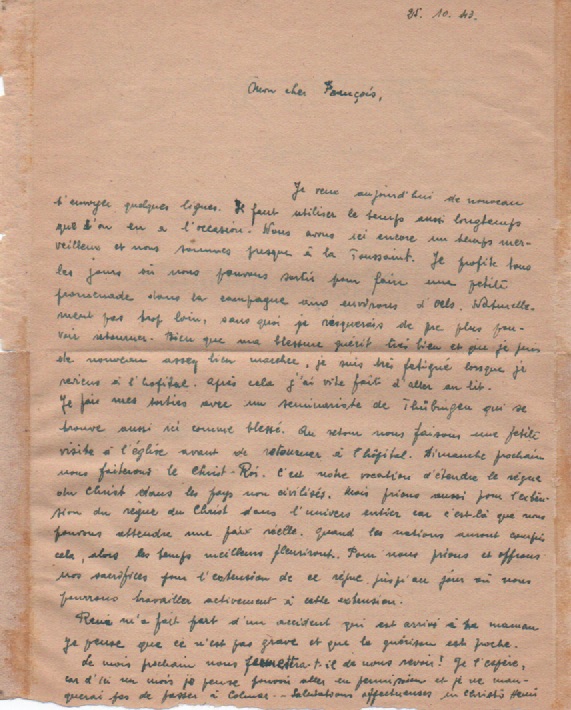 25. 10. 43.
Mon cher François,
Je veux aujourd'hui de nouveau
t'envoyer quelques lignes. Il faut utiliser le temps aussi longtemps
que l'on en a l'occasion. Nous avons ici encore un temps mer-
veilleux et nous sommes presque à la Toussaint. Je profite tous
les jours où nous pouvons sortir pour faire une petite
promenade dans la campagne aux environs d'Oels. Naturelle-
ment pas trop loin, sans quoi je risquerais de ne plus pou-
voir retourner. Bien que ma blessure guérit très bien et que je puis
de nouveau assez bien marcher, je suis très fatigué lorsque je
reviens à l'hôpital. Après cela j'ai vite fait d'aller au lit.
Je fais mes sorties avec un seminariste de Thübingen qui se
trouve aussi ici comme blessé. Au retour nous faisons une petite
visite à l'église avant de retourner à l'hôpital. Dimanche prochain
nous fêterons le Christ-Roi. C'est notre vocation d'étendre le règne
du Christ dans les pays non civilisés. Mais prions aussi pour l'exten-
sion du règne du Christ dans l'univers entier car c'est là que nous
pouvons attendre une paix réelle. Quand les nations auront compris
cela, alors les temps meilleurs fleuriront. Pour nous prions et offrons
nos sacrifices pour l'extension de ce règne jusqu'au jour où nous
pourrons travailler activement à cette extension.
René m'a fait part d'un accident qui est arrivé à ta maman
Je pense que ce n'est pas grave et que la guérison est proche.
Le mois prochain nous permettra-t-il de nous revoir! Je l'espère,
car d'ici un mois je pense pouvoir aller en permission et je ne man-
querai pas de passer à Colmar. - Salutations affectueuses in Christo Henri